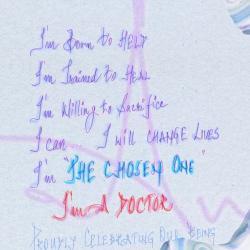 I'm Born to HELP
I'm Trained to HEAL
I'm Willing to Sacrifice
I can I will CHANGE LIVES
I'm "THE CHOSEN ONE"
I'm A DOCTOR
PROUDLY CELEBRATING OUR BEING